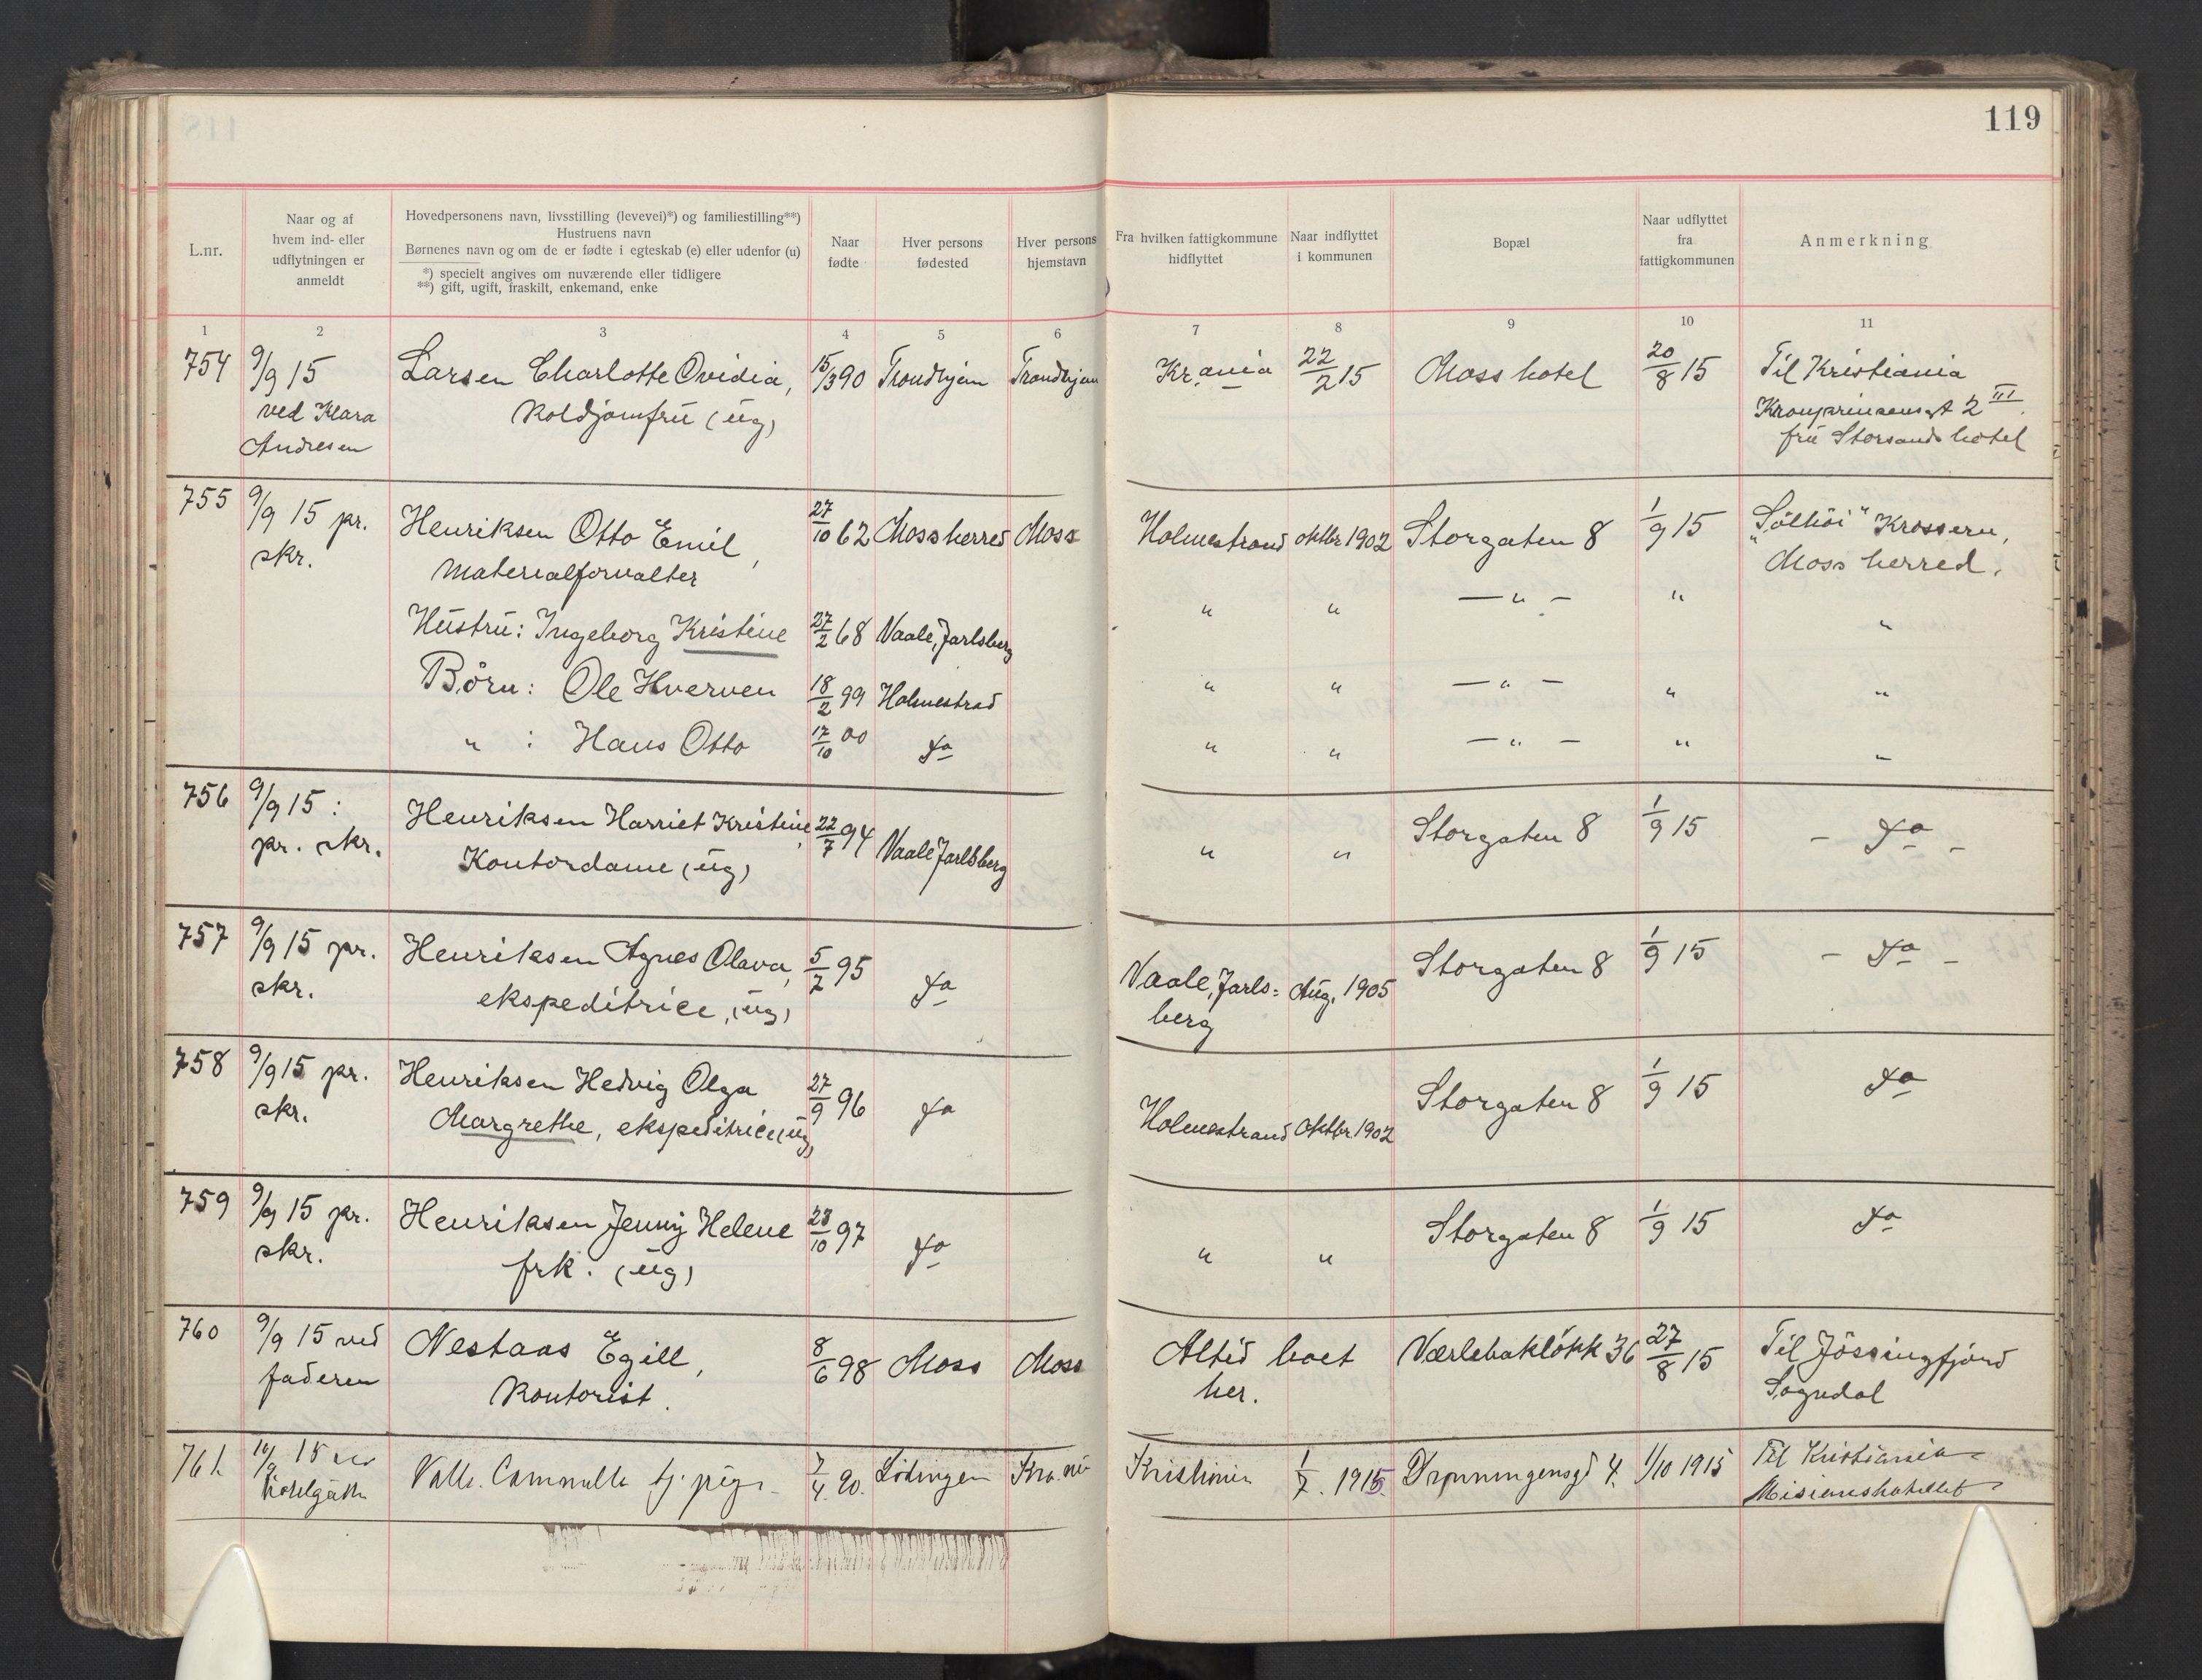 119
L.nr.
Naar og af
hvem ind- eller
udflytningen er
anmeldt
Hovedpersonens navn, livsstilling (levevei)*) og familiestilling**)
Hustruens navn
Børnenes navn og om de er fødte i egteskab (e) eller udenfor (u)
*) specielt angives om nuværende eller tidligere
**) gift, ugift, fraskilt, enkemand, enke
Naar
fødte
Hver persons
fødested
Hver persons
hjemstavn
Fra hvilken fattigkommune
hidflyttet
Naar indflyttet
i kommunen
Bopæl
Naar udflyttet
fra
fattigkommunen
Anmerkning
1 2 3 4 5 6 7 8 9 10 11
754 9/9 15 Larsen Charlotte Ovidia, 15/3 90 Trondhjem Trondhjem Kr.ania 22/2 15 Moss hotel 20/8 15 Til Kristiania
ved Klara Koldjomfru (ug) Kronprinsensgt 2 III.
Andresen fru Storsands hotel
755 9/9 15 pr. Henriksen Otto Emil, 27/10 62 Moss herred Moss Holmestrand oktbr 1902 Storgaten 8 1/9 15 "Sölhöi" Krossern,
skr. Materialforvalter Moss herred.
Hustru: Ingeborg Kristine 27/2 68 Vaale, Jarlsberg " " — " — " "
Børn: Ole Hverven 18/2 99 Holmestrad " " — " — " "
" : Hans Otto 17/10 00 do " " — " — " "
756 9/9 15: Henriksen Harriet Kristine, 22/7 94 Vaale Jarlsberg " " Storgaten 8 1/9 15 - do -
pr. skr. Kontordame (ug)
757 9/9 15 pr. Henriksen Agnes Olava, 5/7 95 do Vaale, Jarls= Aug. 1905 Storgaten 8 1/9 15 - do -
skr. ekspeditrice, (ug) berg
758 9/9 15 pr. Henriksen Hedvig Olga 27/9 96 do Holmestrand oktbr 1902 Storgaten 8 1/9 15 do
skr. Margrethe, ekspeditrice (ug)
759 9/9 15 pr. Henriksen Jenny Helene 23/10 97 do " " Storgaten 8 1/9 15 do
skr. frk. (ug)
760 9/9 15 ved Nestaas Egill, 8/6 98 Moss Moss Altid boet Værlebaklökk 36 27/8 15 Til Jössingfjord
faderen Kontorist. her. Sogndal
761. 15 Valle. tj. pige 7/4. 90. Lödingen Kra.nia Kristiania 1/7. 1915. Dronningensgt 4. 1/10 1915 Til Kristiania
Misionshotellet